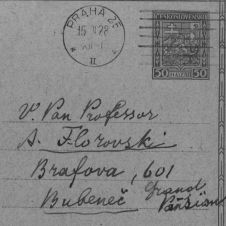 PRAHA 25
ČESKOSLOVENSKO
50 50
V. Pan Professor
A. Florovski
Brafova, 601
Bubeneč Grand
Pansion